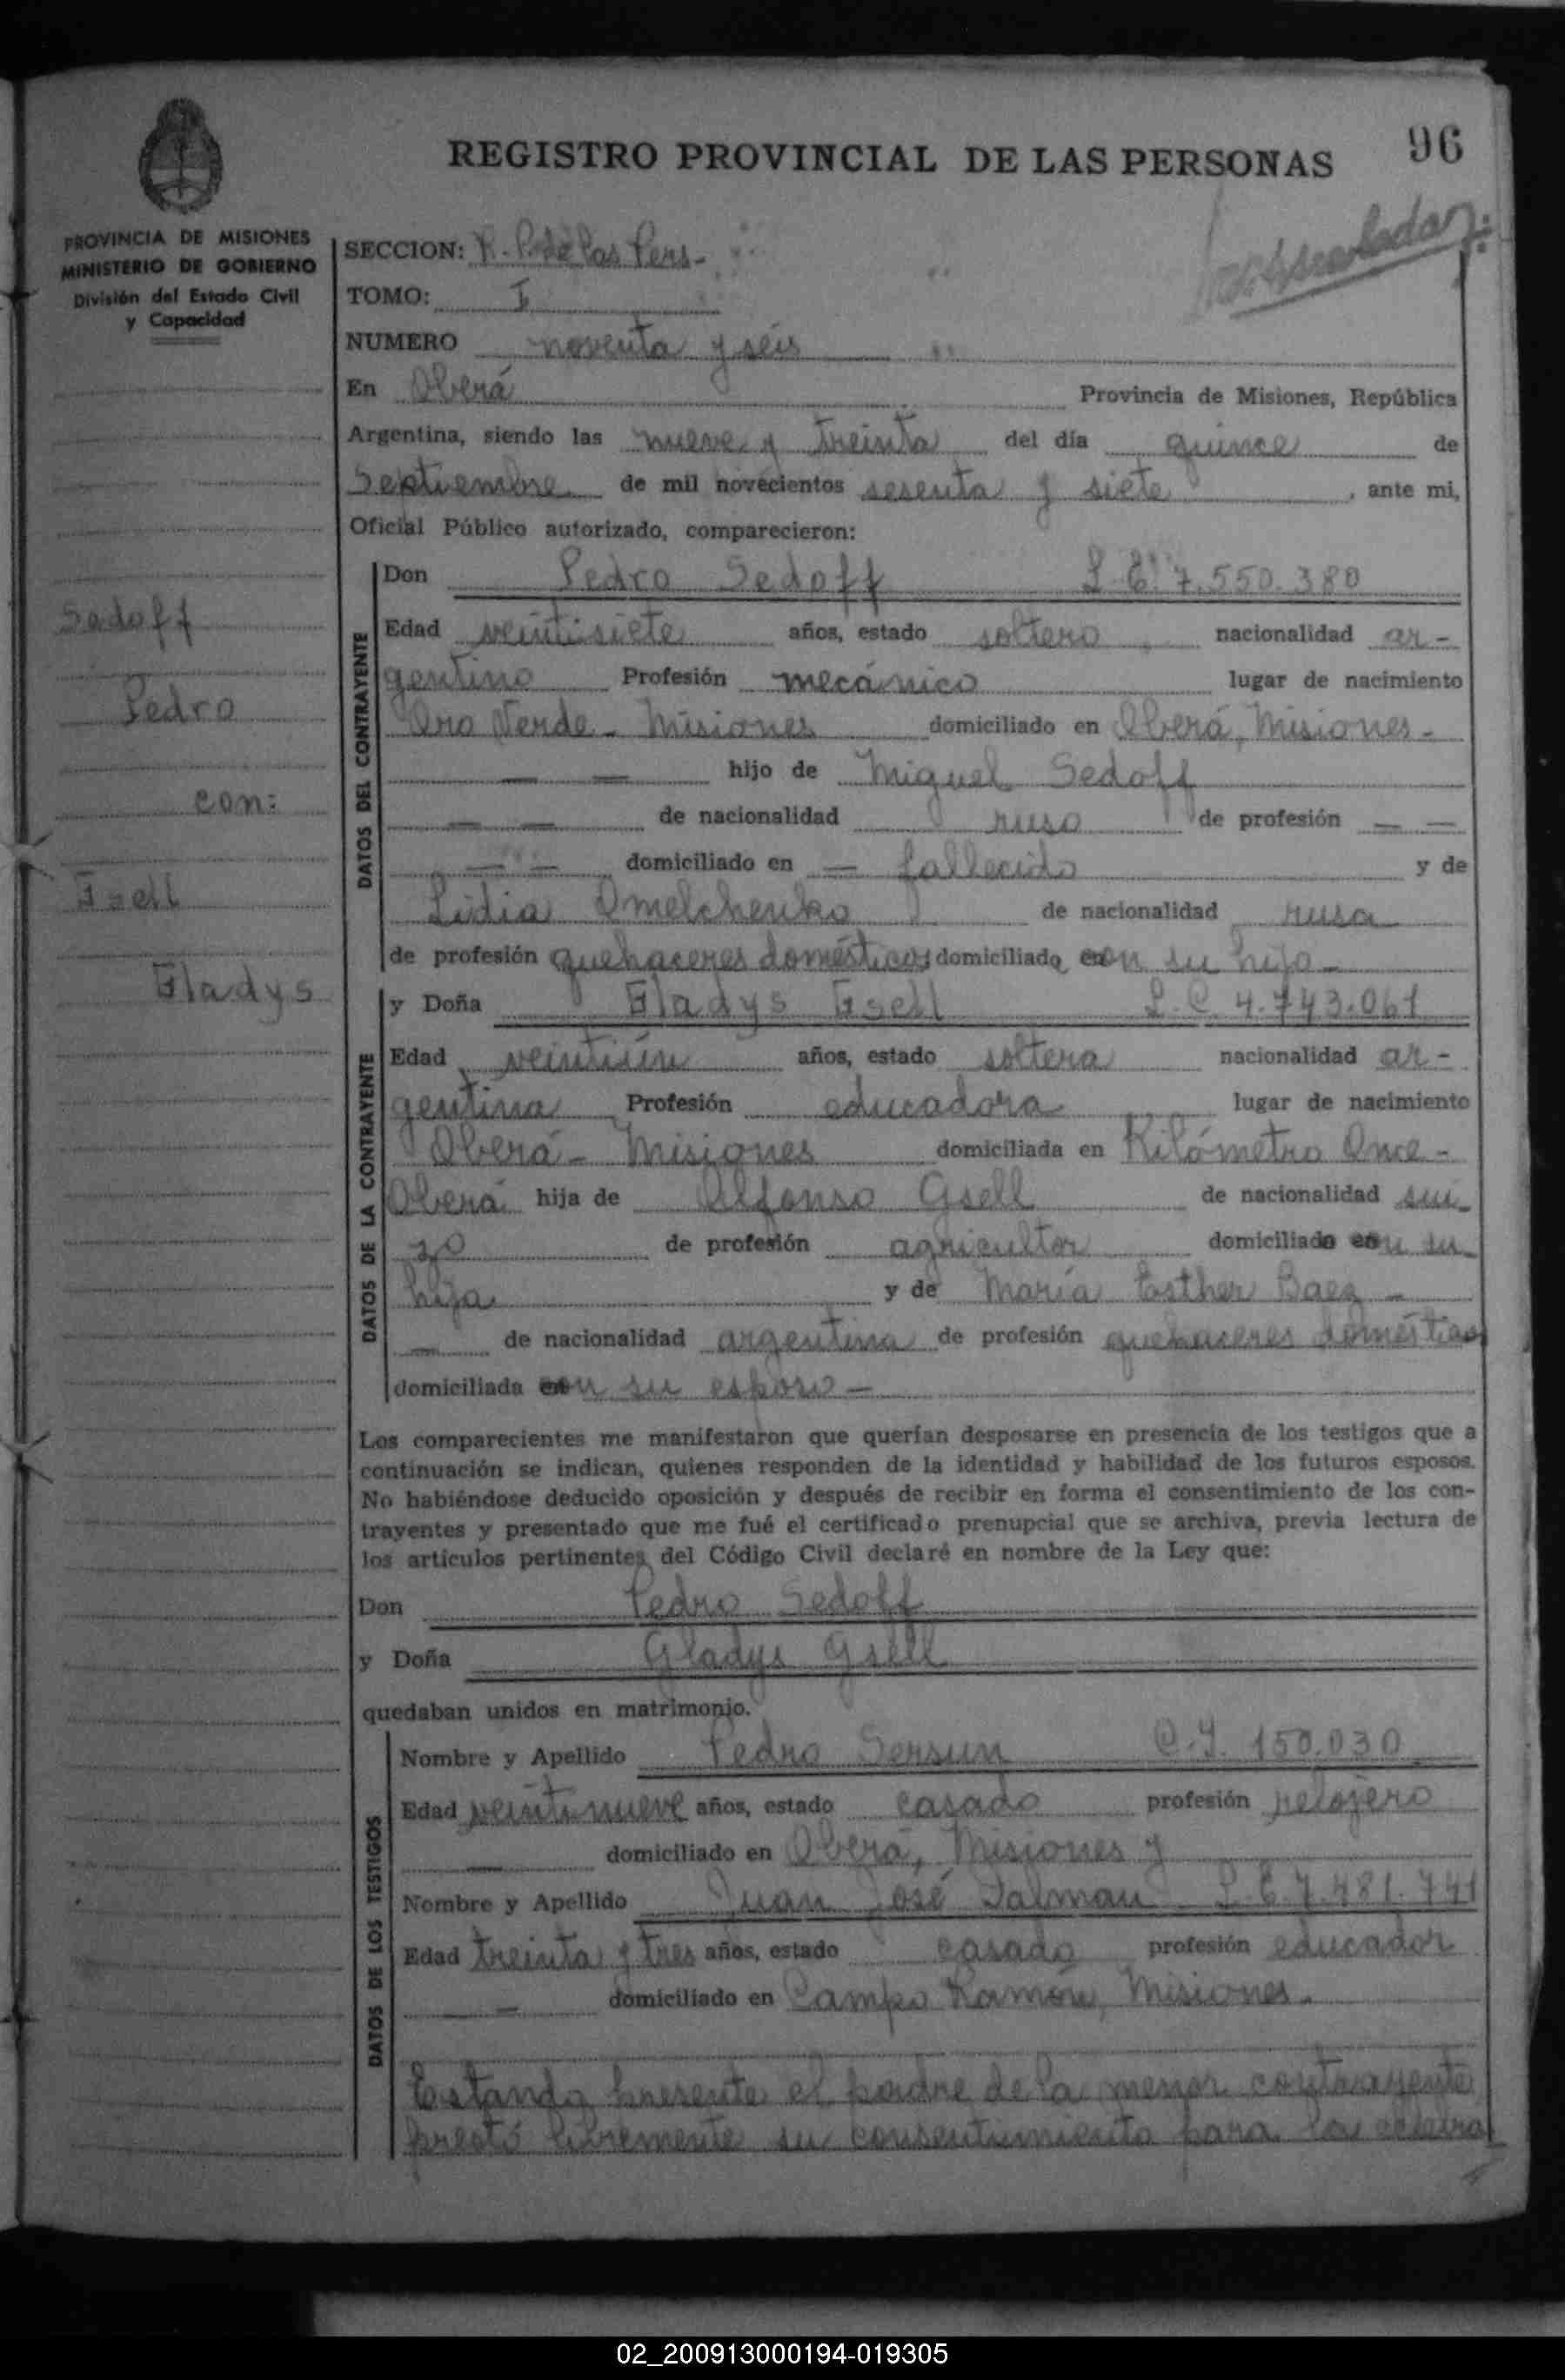 96
REGISTRO PROVINCIAL DE LAS PERSONAS
PROVINCIA DE MISIONES
MINISTERIO DE GOBIERNO
División del Estado Civil
y Capacidad
SECCION: R. P. de las Pers-
TOMO: I
NUMERO noventa y seis
En Oberá Provincia de Misiones, República
Argentina, siendo las nueve y treinta del día quince de
Septiembre de mil novecientos sesenta y siete, ante mi,
Oficial Público autorizado, comparecieron:
Sedoff
Pedro
con:
Gsell
Gladys
DATOS DEL CONTRAYENTE
Don Pedro Sedoff L. E. 7.550.380
Edad veintisiete años, estado soltero nacionalidad ar-
gentino Profesión mecánico lugar de nacimiento
Oro Verde - Misiones domiciliado en Oberá, Misiones -
— — hijo de Miguel Sedoff
— — de nacionalidad ruso de profesión — —
— — domiciliado en — fallecido y de
Lidia Omelchenko de nacionalidad rusa
de profesión quehaceres domésticos domiciliada con su hijo -
DATOS DE LA CONTRAYENTE
y Doña Gladys Gsell L. C. 4.743.061
Edad veintiún años, estado soltera nacionalidad ar-
gentina Profesión educadora lugar de nacimiento
Oberá - Misiones domiciliada en Kilómetro Once -
Oberá hija de Alfonso Gsell de nacionalidad sui-
zo de profesión agricultor domiciliado con su
hija y de María Esther Baez -
— de nacionalidad argentina de profesión quehaceres domésticos
domiciliada con su esposo -
Los comparecientes me manifestaron que querían desposarse en presencia de los testigos que a
continuación se indican, quienes responden de la identidad y habilidad de los futuros esposos.
No habiéndose deducido oposición y después de recibir en forma el consentimiento de los con-
trayentes y presentado que me fué el certificado prenupcial que se archiva, previa lectura de
los artículos pertinentes del Código Civil declaré en nombre de la Ley que:
Don Pedro Sedoff
y Doña Gladys Gsell
quedaban unidos en matrimonio.
DATOS DE LOS TESTIGOS
Nombre y Apellido Pedro Sersun C. I. 150.030
Edad veintinueve años, estado casado profesión relojero
— domiciliado en Oberá, Misiones y
Nombre y Apellido Juan José Dalmau L. E. 7.481.741
Edad treinta y tres años, estado casado profesión educador
— domiciliado en Campo Ramón, Misiones.
Estando presente el padre de la menor contrayente
prestó libremente su consentimiento para la
02_200913000194-019305